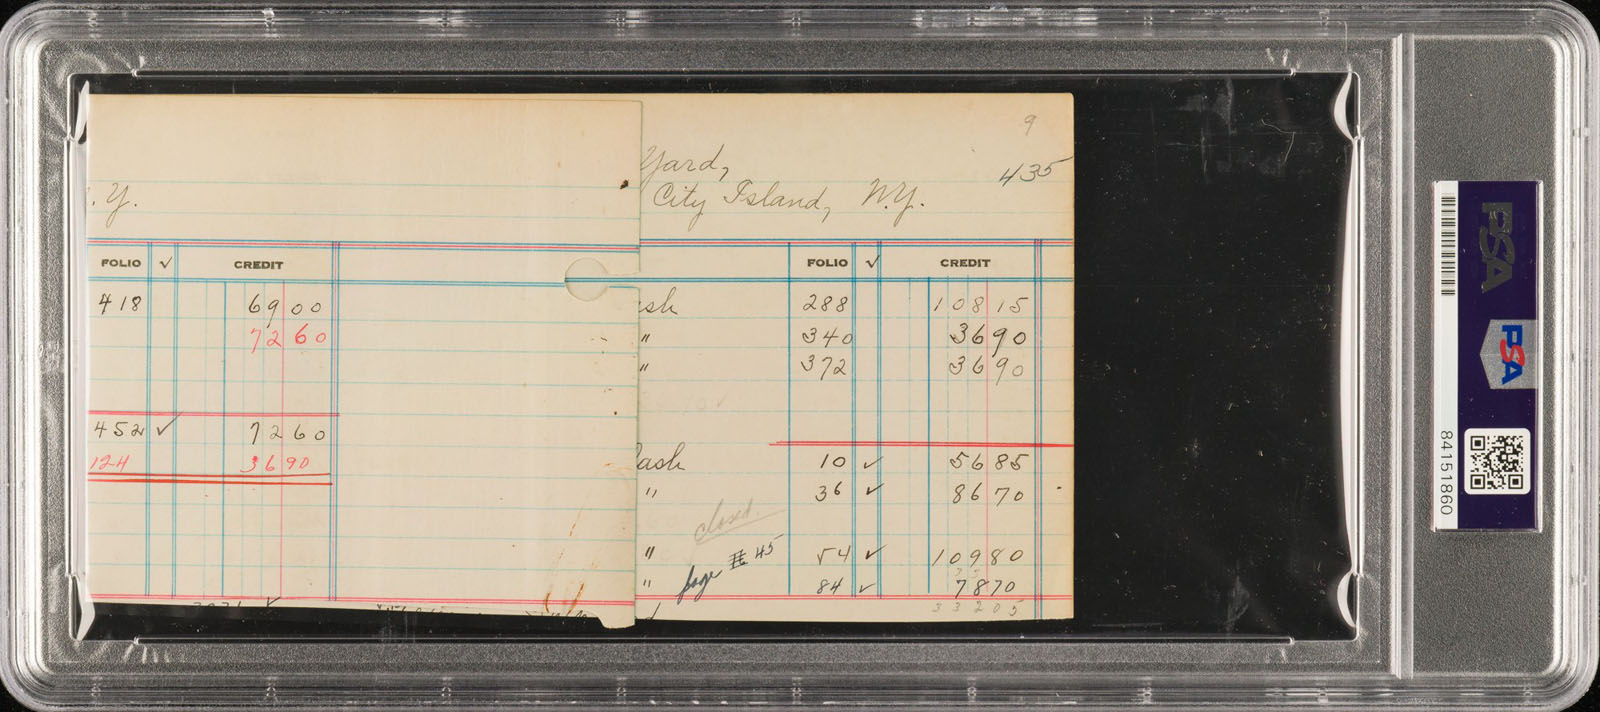 9
Yard,
435
City Island, N.Y.
. Y.
FOLIO √ CREDIT
418 69 00
72 60
452 ✓ 72 60
124 36 90
FOLIO √ CREDIT
288 108 15
" 340 36 90
" 372 36 90
Cash 10 ✓ 56 85
" 36 ✓ 86 70
closed.
" 54 ✓ 109 80
page # 45
" 84 ✓ 78 70
332 05
PSA
PSA
84151860